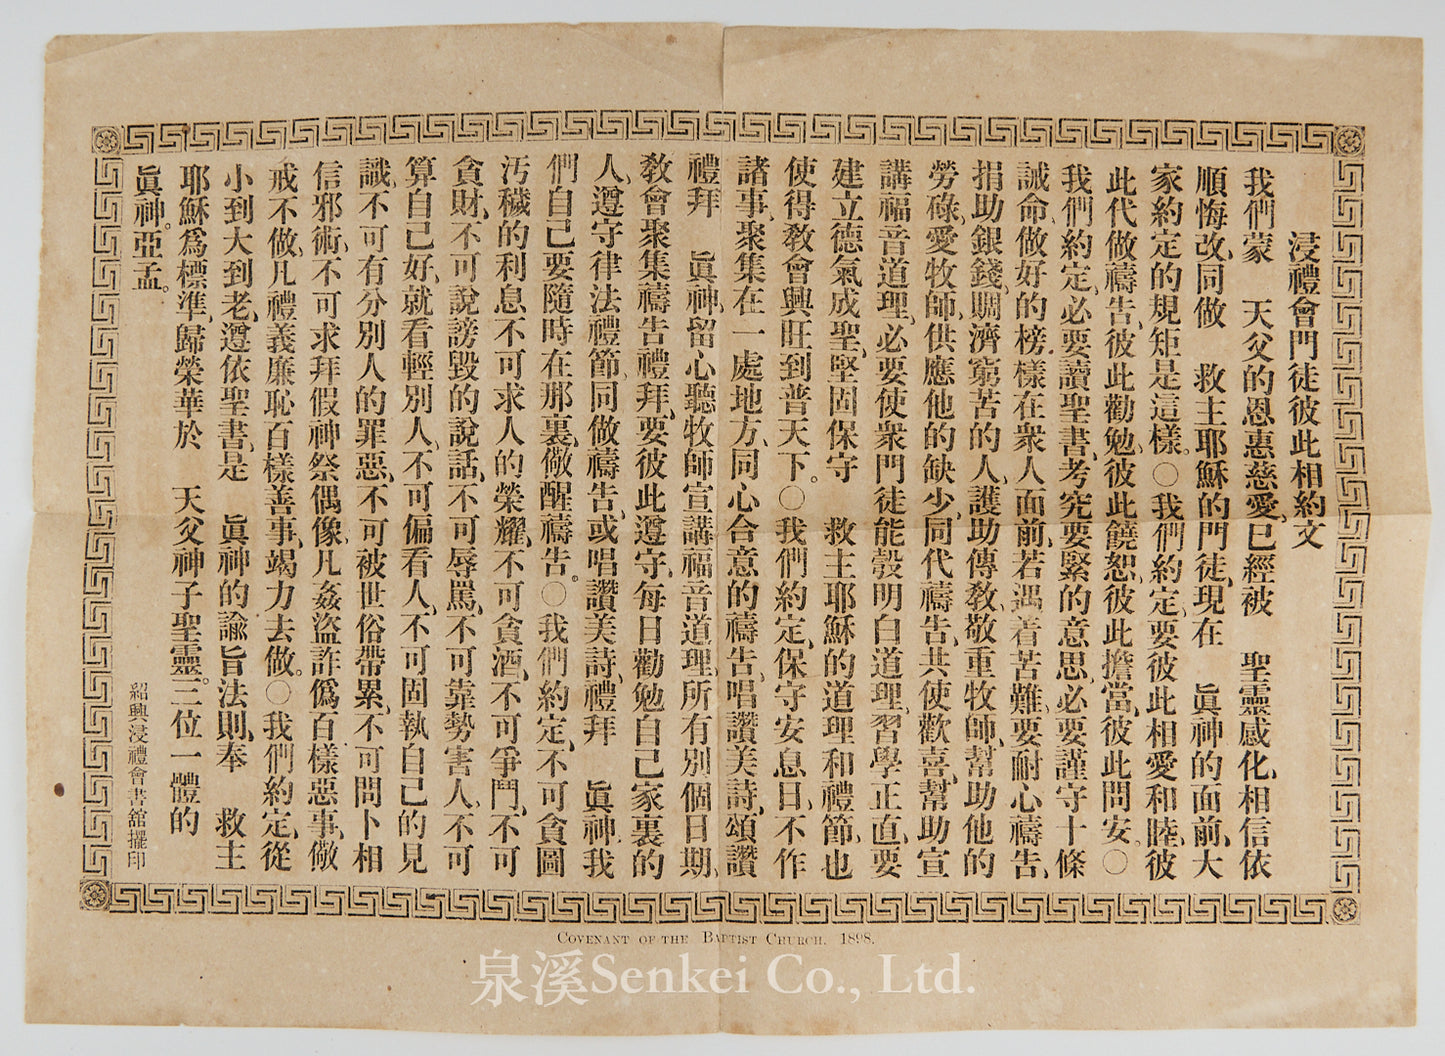 浸禮會門徒彼此相約文
我們蒙　天父的恩惠慈愛、已經被　聖靈感化、相信依
順悔改、同做　救主耶穌的門徒、現在　眞神的面前、大
家約定的規矩是這樣。〇我們約定、要彼此相愛和睦、彼
此代做禱告、彼此勸勉、彼此饒恕、彼此擔當、彼此問安。〇
我們約定、必要讀聖書、考究要緊的意思、必要謹守十條
誡命、做好的榜樣在衆人面前、若遇着苦難、要耐心禱告、
捐助銀錢、賙濟窮苦的人、護助傳敎、敬重牧師、幫助他的
勞碌、愛牧師、供應他的缺少、同代禱告、共使歡喜、幫助宣
講福音道理、必要使衆門徒能彀明白道理、習學正直、要
建立德氣成聖、堅固保守　救主耶穌的道理和禮節、也
使得敎會興旺到普天下。〇我們約定、保守安息日、不作
諸事、聚集在一處地方、同心合意的禱告、唱讚美詩、頌讚
禮拜　眞神、留心聽牧師宣講福音道理、所有別個日期、
敎會聚集禱告禮拜、要彼此遵守、每日勸勉自己家裏的
人、遵守律法禮節、同做禱告、或唱讚美詩、禮拜　眞神、我
們自己要隨時在那裏、儆醒禱告。〇我們約定、不可貪圖
汚穢的利息、不可求人的榮耀、不可貪酒、不可爭鬥、不可
貪財、不可說謗毀的說話、不可辱罵、不可靠勢害人、不可
算自己好、就看輕別人、不可偏看人、不可固執自己的見
識、不可有分別人的罪惡、不可被世俗帶累、不可問卜相
信邪術、不可求拜假神祭偶像、凡姦盜詐僞百樣惡事、儆
戒不做、凡禮義廉恥百樣善事、竭力去做。〇我們約定、從
小到大到老、遵依聖書、是　眞神的諭旨法則、奉　救主
耶穌爲標準、歸榮華於　天父神子聖靈。三位一體的
眞神。亞孟。
紹興浸禮會書舘擺印
COVENANT OF THE BAPTIST CHURCH. 1898.
泉溪Senkei Co., Ltd.